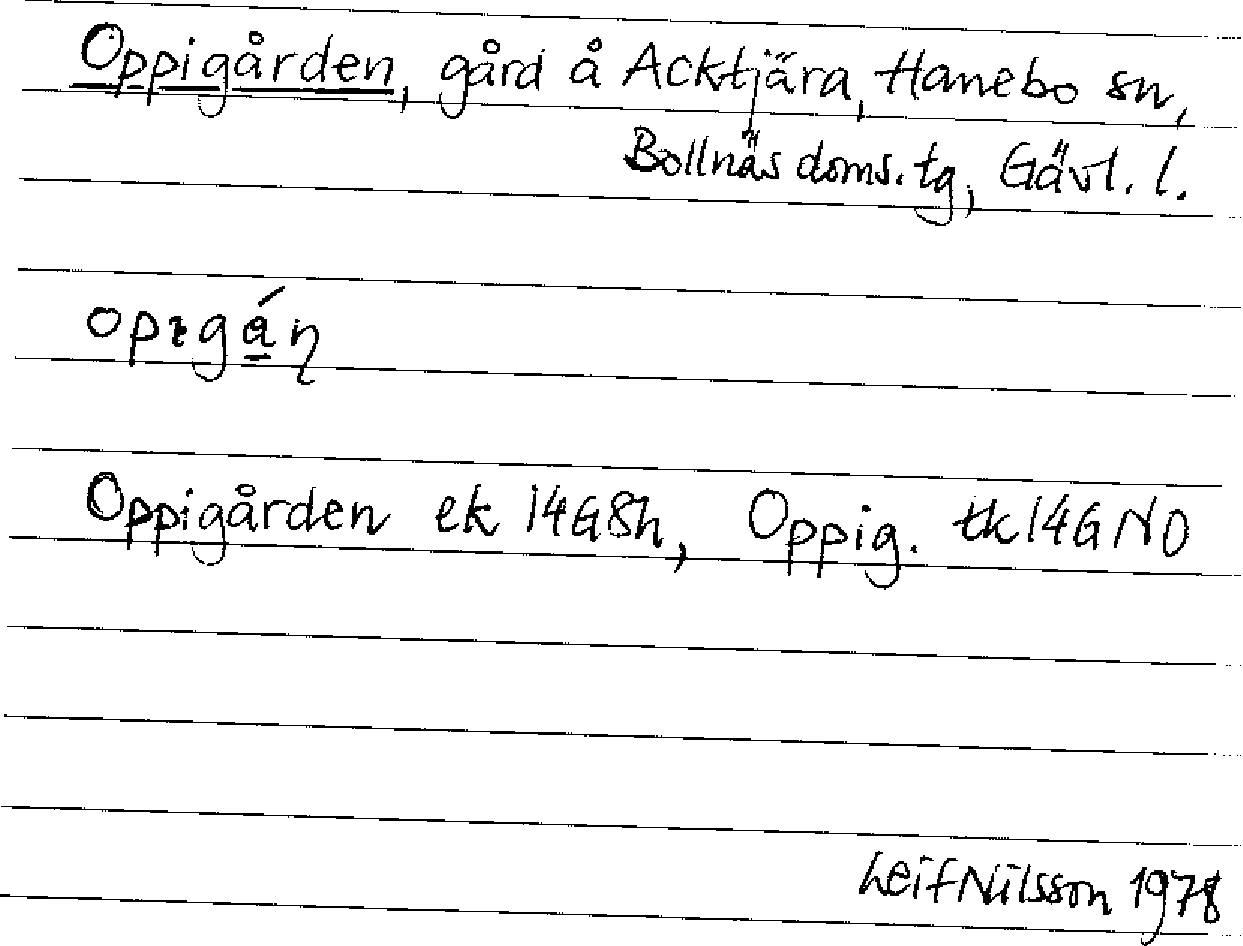 Oppigården, gård å Acktjära, Hanebo sn,
Bollnäs doms. tg, Gävl. l.
Oppigården ek 14G8h, Oppig. tk14GNO
Leif Nilsson 1978